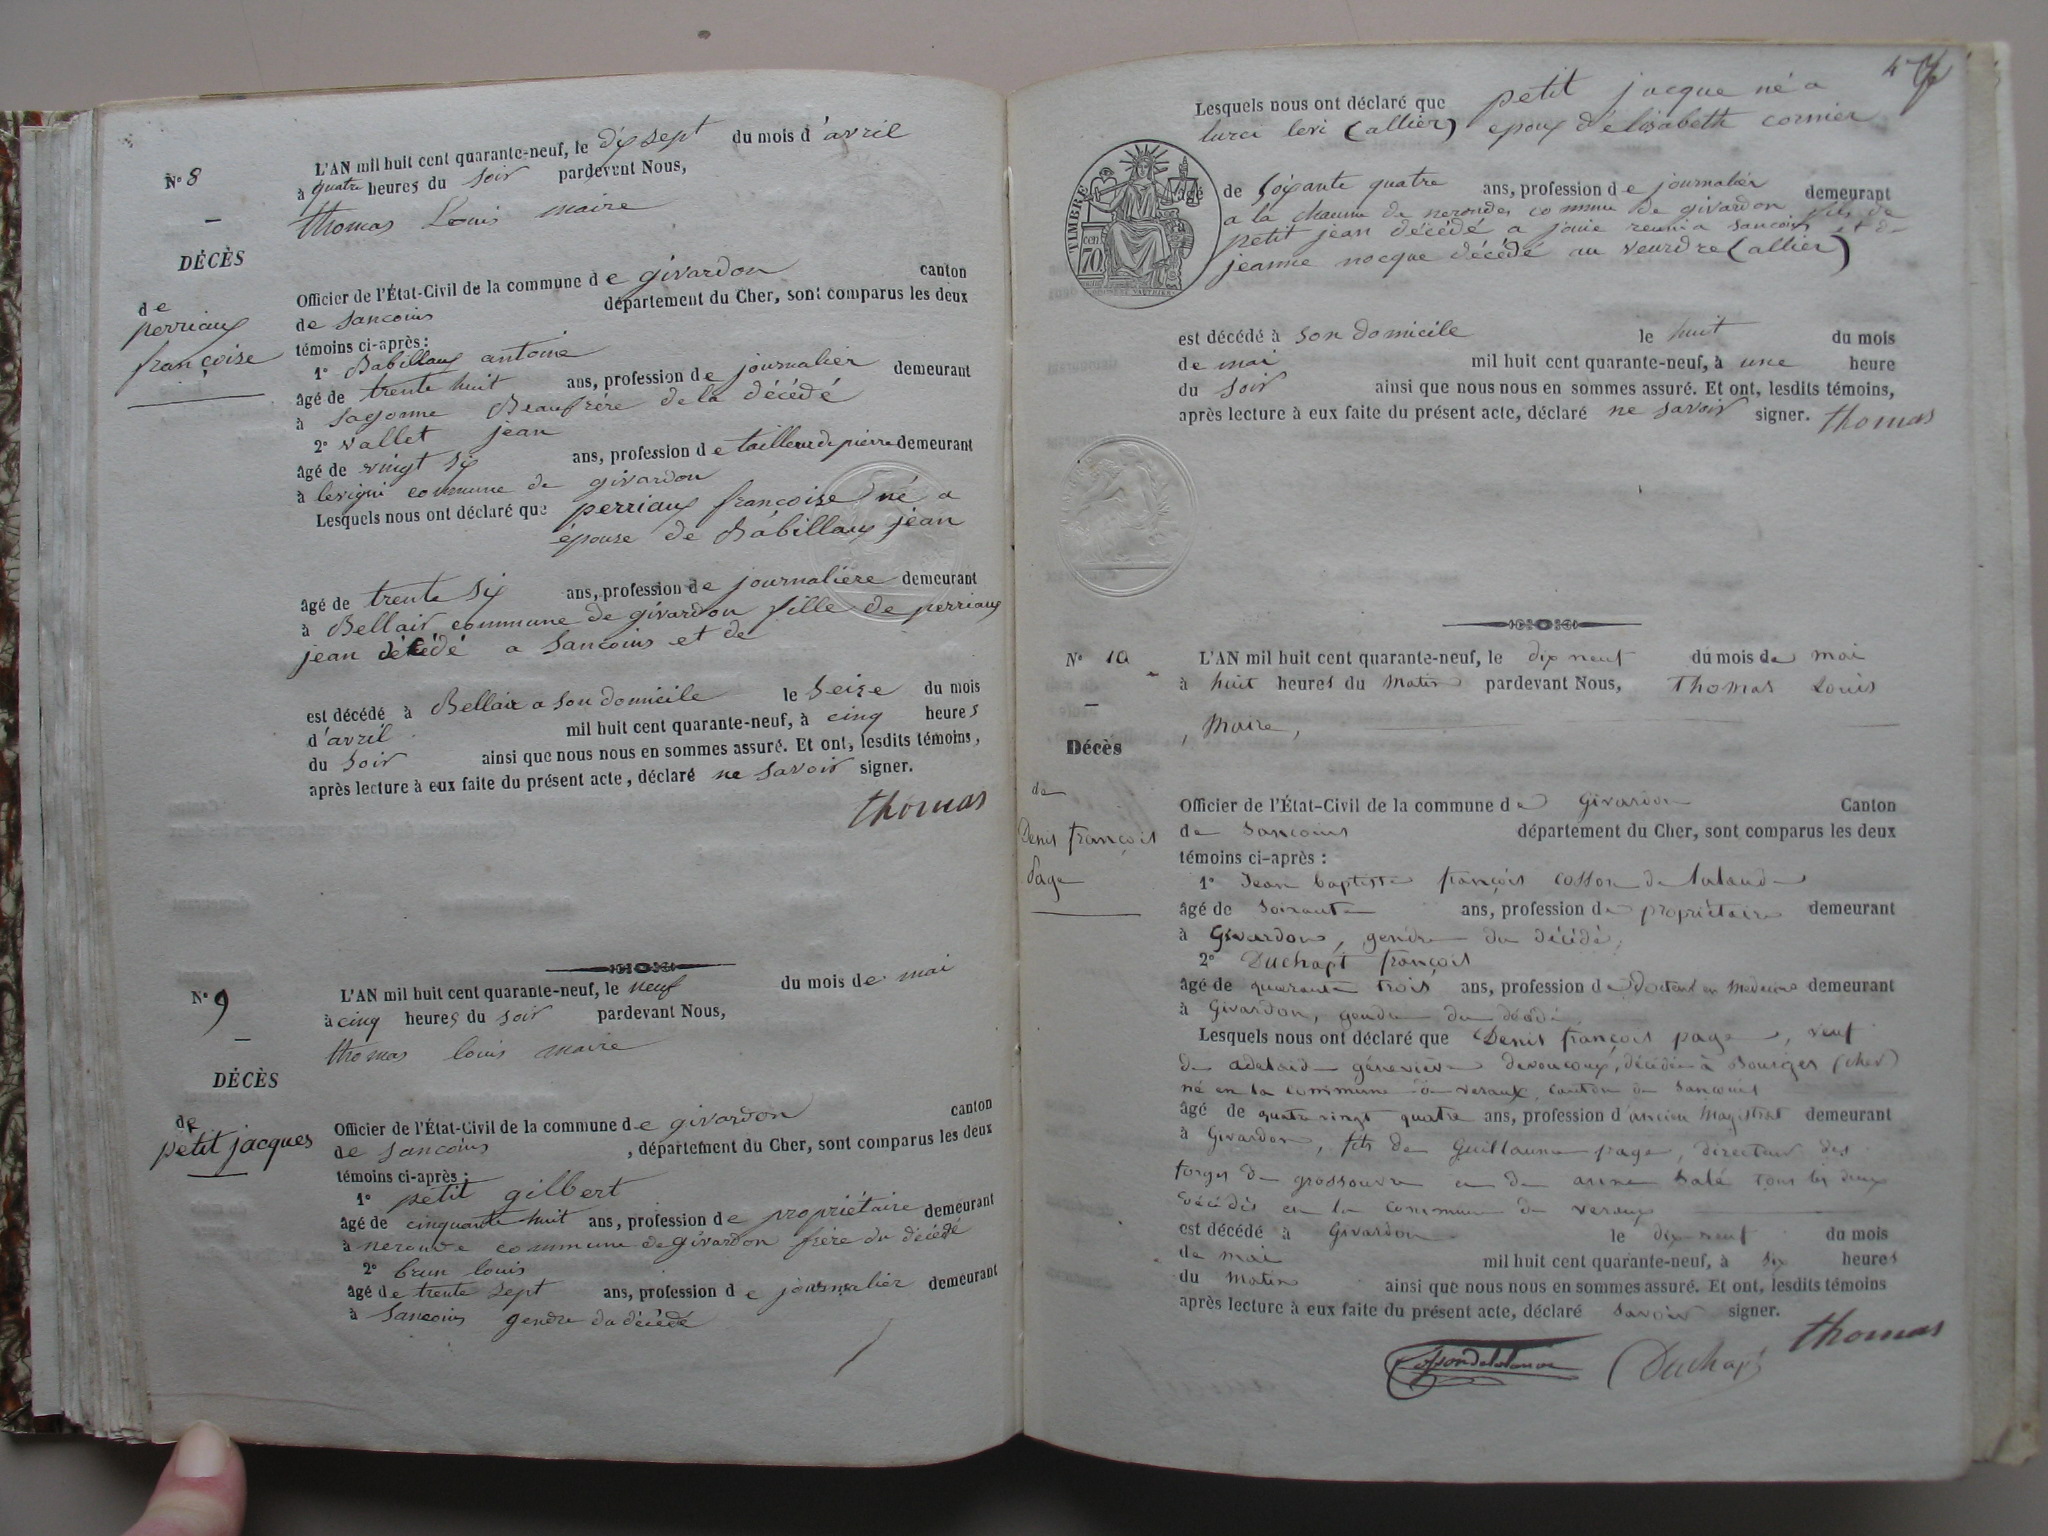 N° 8
DÉCÈS
de
perriaux
françoise
L'AN mil huit cent quarante-neuf, le dix sept du mois d'avril
à quatre heures du soir pardevant Nous,
thomas Louis maire
Officier de l'État-Civil de la commune de givardon canton
de sancoins département du Cher, sont comparus les deux
témoins ci-après :
1° Babillaux antoine
âgé de trente huit ans, profession de journalier demeurant
à sagonne Beaufrére de la décédé
2° vallet jean
âgé de vingt six ans, profession de tailleur de pierre demeurant
à levigni commune de givardon
Lesquels nous ont déclaré que perriaux francoise né a
épouse de Babillaux jean
âgé de trente six ans, profession de journaliére demeurant
à Bellair commune de givardon fille de perriaux
jean décédé a sancoins et de
est décédé à Bellair a son domicile le seize du mois
d'avril mil huit cent quarante-neuf, à cinq heures
du soir ainsi que nous nous en sommes assuré. Et ont, lesdits témoins,
après lecture à eux faite du présent acte, déclaré ne savoir signer.
thomas
N° 9
DÉCÈS
de
petit jacques
L'AN mil huit cent quarante-neuf, le neuf du mois de mai
à cinq heures du soir pardevant Nous,
thomas louis maire
Officier de l'État-Civil de la commune de givardon canton
de sancoins, département du Cher, sont comparus les deux
témoins ci-après :
1° petit gilbert
âgé de cinquante huit ans, profession de propriétaire demeurant
à neronde commune de givardon frére du décédé
2° brun louis
âgé de trente sept ans, profession de journalier demeurant
à sancoins gendre du décédé
47
Lesquels nous ont déclaré que petit jacque né a
lurci levi (allier) epoux d'elisabeth cornier
TIMBRE
cen
70
âgé de soixante quatre ans, profession de journalier demeurant
a la chaume de nerondes commune de givardon fils de
petit jean décédé a jouie reuni a sancoins et de
jeanne nocque décédé au veurdre (allier)
est décédé à son domicile le huit du mois
de mai mil huit cent quarante-neuf, à une heure
du soir ainsi que nous nous en sommes assuré. Et ont, lesdits témoins,
après lecture à eux faite du présent acte, déclaré ne savoir signer. thomas
N° 10
Décès
de
Denis françois
page
L'AN mil huit cent quarante-neuf, le dix neuf du mois de mai
à huit heures du matin pardevant Nous, Thomas Louis
, Maire,
Officier de l'État-Civil de la commune de Givardon Canton
de Sancoins département du Cher, sont comparus les deux
témoins ci-après :
1° Jean baptiste françois cosson de lalande
âgé de soixante ans, profession de propriétaire demeurant
à Givardon, gendre du décédé,
2° Duchapt françois
âgé de quarante trois ans, profession de docteur en medecine demeurant
à Givardon, gendre du décédé
Lesquels nous ont déclaré que Denis françois page, veuf
de adelaide géneviève devoucoux, décédée à Bourges (cher)
né en la commune de veraux, canton de sancoins
âgé de quatre vingt quatre ans, profession d'ancien magistrat demeurant
à Givardon, fils de Guillaume page, directeur des
forges de grossouvre et de anne salé tous les deux
décédés en la commune de veraux
est décédé à Givardon le dix neuf du mois
de mai mil huit cent quarante-neuf, à six heures
du matin ainsi que nous nous en sommes assuré. Et ont, lesdits témoins
après lecture à eux faite du présent acte, déclaré savoir signer.
thomas
Cossondelalande Duchapt